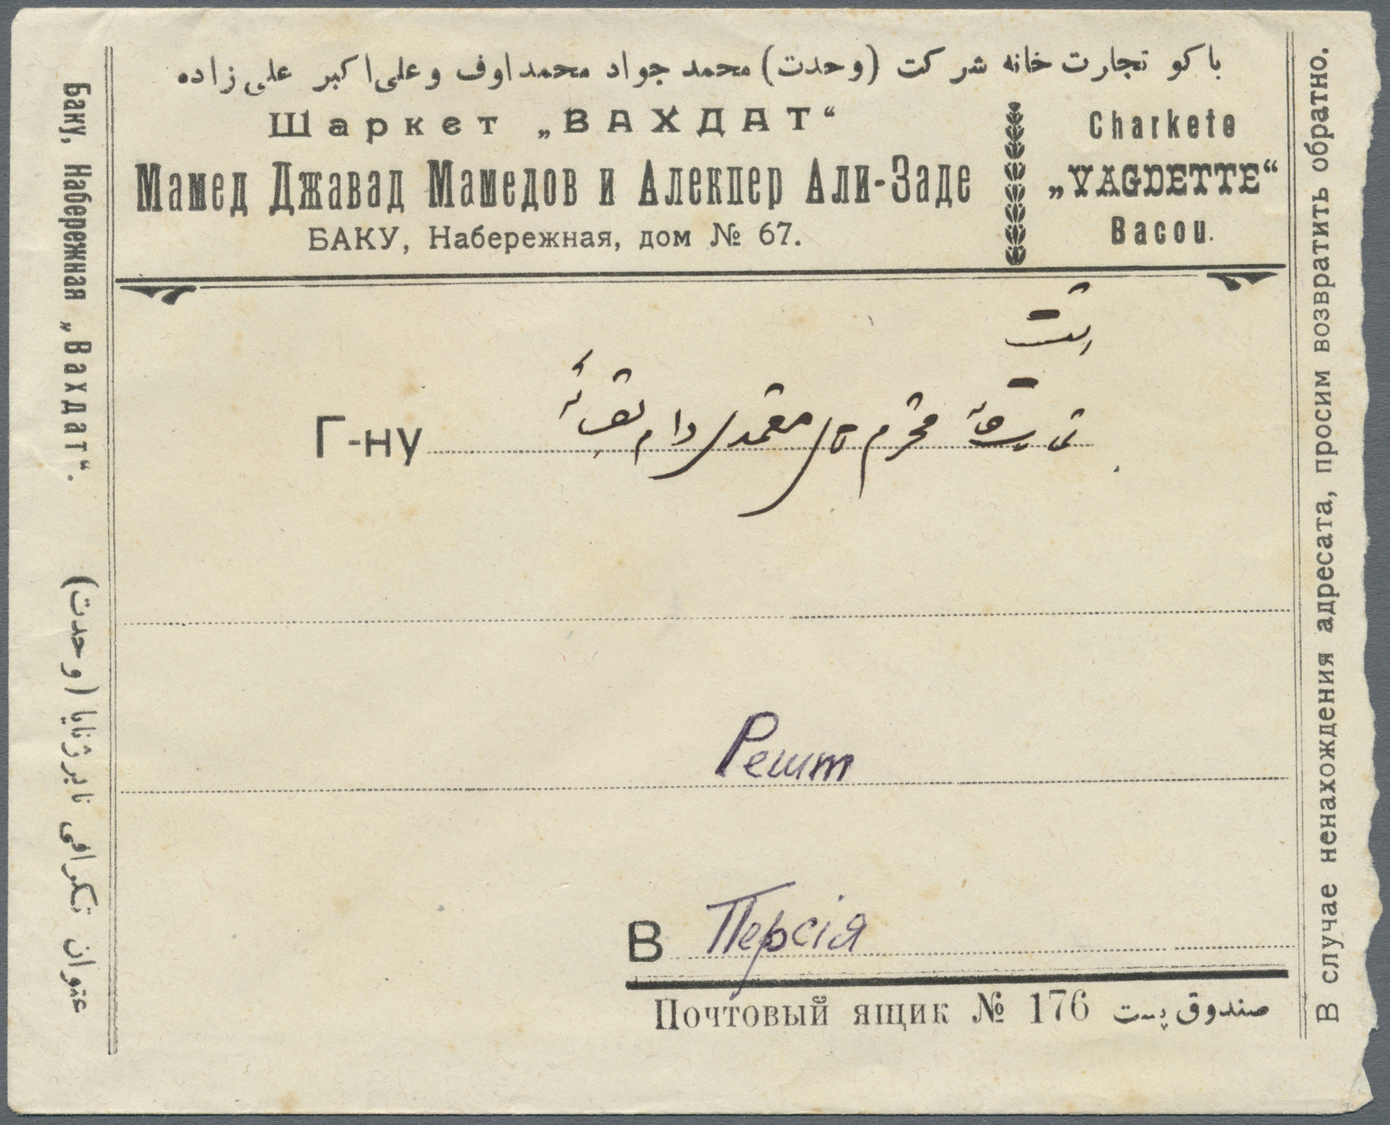 باکو تجارت خانه شرکت (وحدت) محمد جواد محمداوف و علی‌اکبر علی‌زاده
Шаркет „ВАХДАТ“
Мамед Джавад Мамедов и Алекпер Али-Заде
БАКУ, Набережная, дом № 67.
Charkete
„VAGDETTE“
Bacou.
Баку, Набережная „Вахдат“.
(وحدت)
عنوان تلگرافی
В случае ненахождения адресата, просим возвратить обратно.
رشت
Г-ну
محترم
Решт
В Персія
Почтовый ящик № 176 صندوق پست